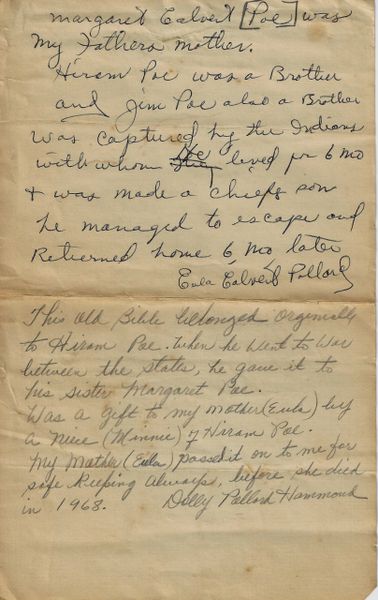 Margaret Calvert [Poe] was
My Fathers mother.
Hiram Poe was a Brother
and Jim Poe also a Brother
was captured by the Indians
with whom he lived for 6 Mo
& was made a chiefs son
he managed to escape and
Returned home 6 Mo, later
Eula Calvert Pollard
This Old Bible belonged Orgenally
to Hiram Poe. when he went to War
between the states, he gave it to
his sister Margaret Poe.
Was a gift to my Mother (Eula) by
a Niece (Minnie) of Hiram Poe.
My Mother (Eula) passed it on to me for
safe keeping always, before she died
in 1968. Dolly Pollard Hammond